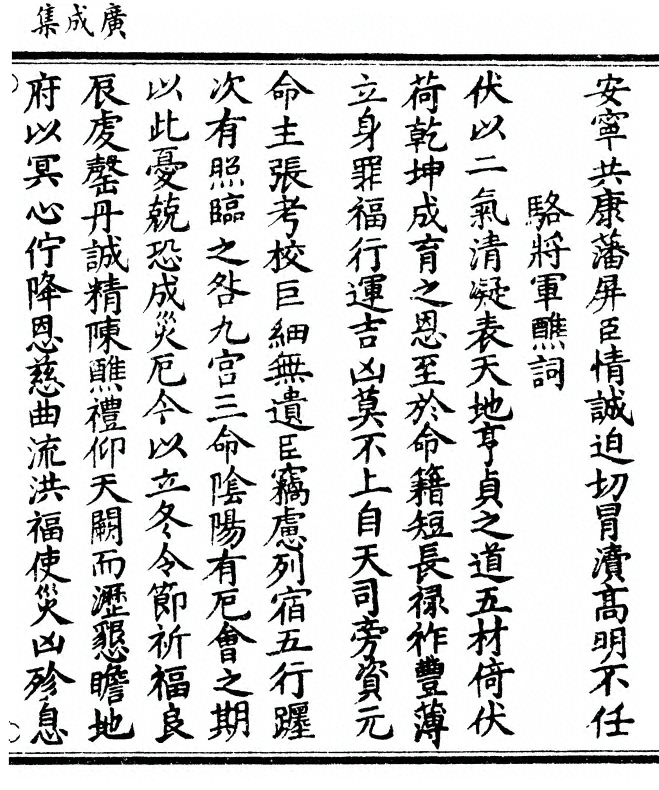 廣成集
安寧共康藩屏臣情誠迫切冒瀆高明不任
駱將軍醮詞
伏以二氣清凝表天地亨貞之道五材倚伏
荷乾坤成育之恩至於命籍短長祿祚豐薄
立身罪福行運吉凶莫不上自天司旁資元
命主張考校巨細無遺臣竊慮列宿五行躔
次有照臨之咎九宮三命陰陽有厄會之期
以此憂兢恐成災厄今以立冬令節祈福良
辰虔罄丹誠精陳醮禮仰天闕而瀝懇瞻地
府以冥心佇降恩慈曲流洪福使災凶殄息